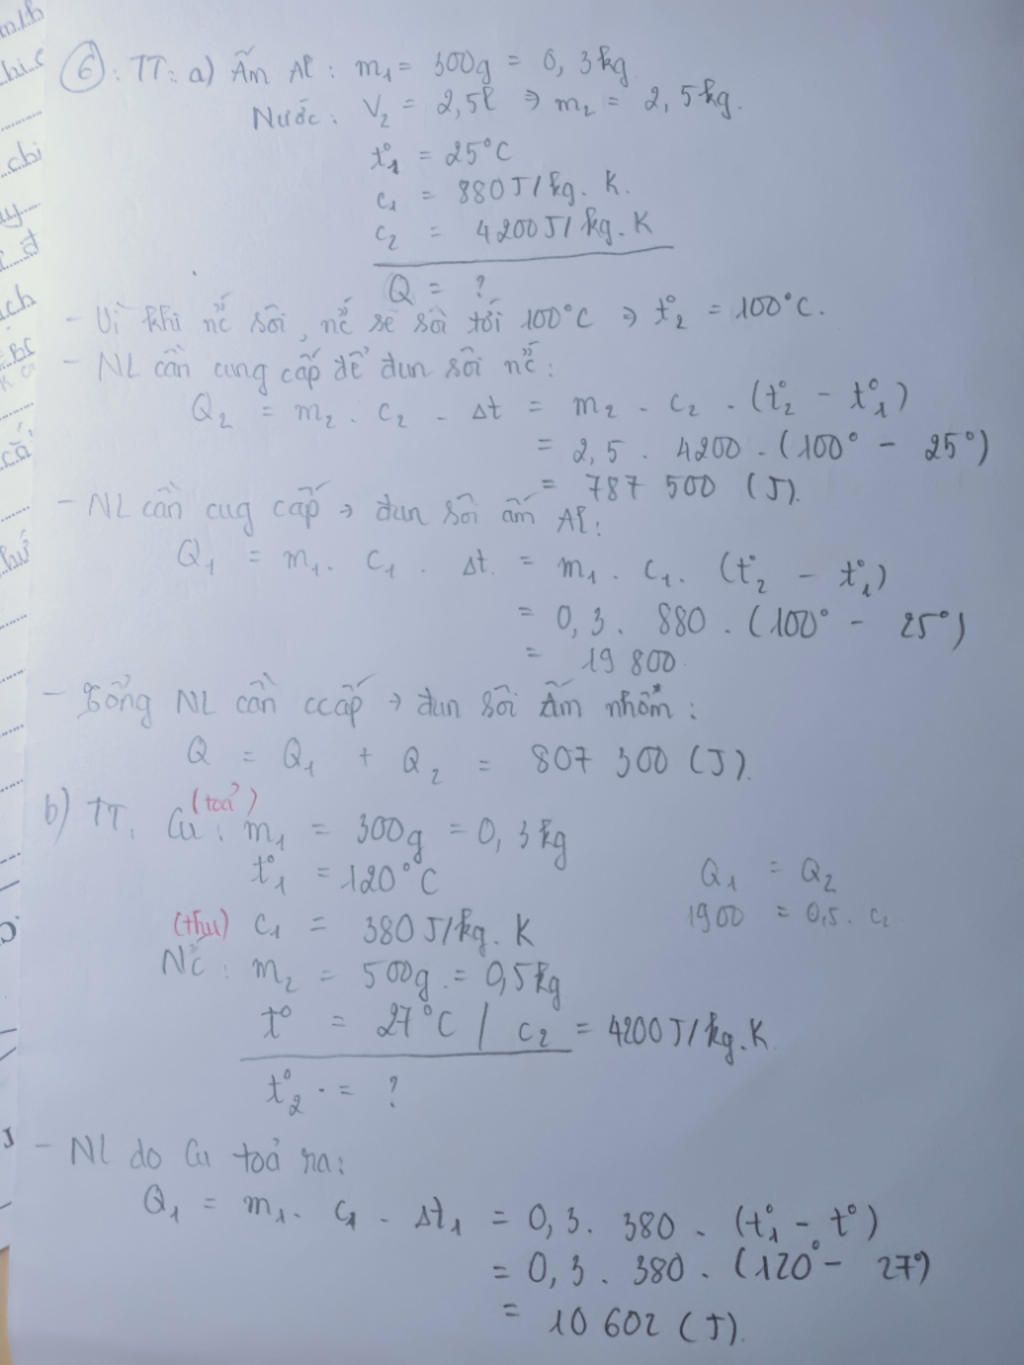 6: TT: a) Ấm Al : m₁ = 300g = 0,3kg
Nước: V₂ = 2,5l ⇒ m₂ = 2,5kg.
t°₁ = 25°C
c₁ = 880J/kg.K.
c₂ = 4200J/kg.K
Q = ?
- Vì khi nć sôi, nć sẽ sôi tới 100°C ⇒ t°₂ = 100°C.
- NL cần cung cấp để đun sôi nć:
Q₂ = m₂ . c₂ . Δt = m₂ . c₂ . (t°₂ - t°₁)
= 2,5 . 4200 . (100° - 25°)
= 787 500 (J).
- NL cần cug cấp → đun sôi ấm Al:
Q₁ = m₁ . c₁ . Δt = m₁ . c₁ . (t°₂ - t°₁)
= 0,3 . 880 . (100° - 25°)
= 19 800
- Tổng NL cần ccấp → đun sôi Ấm nhôm :
Q = Q₁ + Q₂ = 807 300 (J).
b) TT: (toả) Cu : m₁ = 300g = 0,3kg
t°₁ = 120°C
Q₁ = Q₂
(thu) c₁ = 380J/kg.K
1900 = 0,5 . c₂
Nć : m₂ = 500g = 0,5kg
t° = 27°C / c₂ = 4200J/kg.K
t°₂ = ?
- NL do Cu toả ra:
Q₁ = m₁ . c₁ . Δt₁ = 0,3 . 380 . (t°₁ - t°)
= 0,3 . 380 . (120° - 27°)
= 10 602 (J).